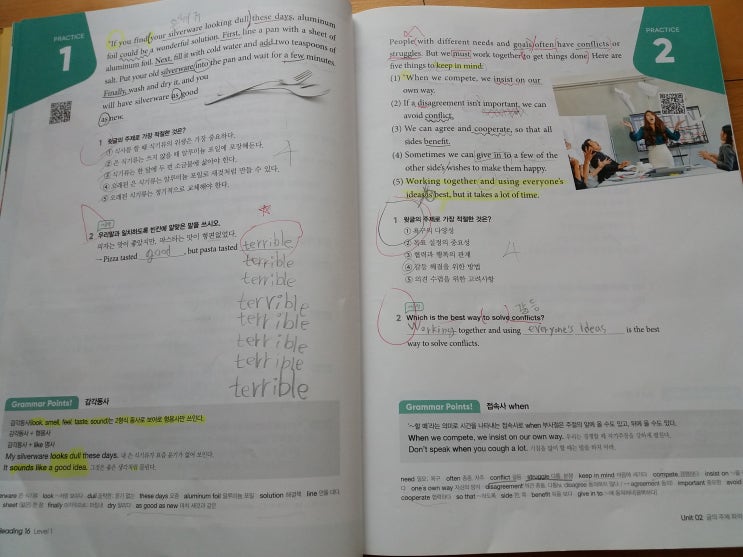 PRACTICE
1
"If you find your silverware looking dull these days, aluminum
foil could be a wonderful solution. First, line a pan with a sheet of
aluminum foil. Next, fill it with cold water and add two teaspoons of
salt. Put your old silverware into the pan and wait for a few minutes.
Finally, wash and dry it, and you
will have silverware as good
as new.
1 윗글의 주제로 가장 적절한 것은?
① 식사를 할 때 식기류의 위생은 가장 중요하다.
② 은 식기류는 쓰지 않을 때 알루미늄 포일에 포장해둔다.
③ 식기류는 한 달에 두 번 소금물에 삶아야 한다.
④ 오래된 은 식기류는 알루미늄 포일로 새것처럼 만들 수 있다.
⑤ 오래된 식기류는 정기적으로 교체해야 한다.
4
2 우리말과 일치하도록 빈칸에 알맞은 말을 쓰시오.
피자는 맛이 좋았지만, 파스타는 맛이 형편없었다.
→ Pizza tasted good, but pasta tasted terrible
terrible
terrible
terrible
terrible
terrible
terrible
terrible
Grammar Points! 감각동사
감각동사(look, smell, feel, taste, sound)는 2형식 동사로 보어로 형용사만 쓰인다.
감각동사 + 형용사
감각동사 + like 명사
My silverware looks dull these days. 내 은 식기류가 요즘 윤기가 없어 보인다.
It sounds like a good idea. 그것은 좋은 생각처럼 들린다.
these days 요즘 aluminum foil 알루미늄 포일 solution 해결책 line
finally as good as new
Reading 16 Level 1
PRACTICE
2
People with different needs and goals often have conflicts or
struggles. But we must work together to get things done. Here are
five things to keep in mind:
(1) When we compete, we insist on our
own way.
(2) If a disagreement isn't important, we can
avoid conflict.
(3) We can agree and cooperate, so that all
sides benefit.
(4) Sometimes we can give in to a few of the
other side's wishes to make them happy.
(5) Working together and using everyone's
ideas is best, but it takes a lot of time.
1 윗글의 주제로 가장 적절한 것은?
① 욕구의 다양성
② 목표 설정의 중요성
③ 협력과 행복의 관계
④ 갈등 해결을 위한 방법
⑤ 의견 수렴을 위한 고려사항
4
갈등
2 Which is the best way to solve conflicts?
Working together and using everyone's ideas is the best
way to solve conflicts.
Grammar Points! 접속사 when
'~할 때'라는 의미로 시간을 나타내는 접속사로 when 부사절은 주절의 앞에 올 수도 있고, 뒤에 올 수도 있다.
When we compete, we insist on our own way. 우리는 경쟁할 때 자기주장을 강하게 펼친다.
Don't speak when you cough a lot.
need often conflict 갈등 struggle keep in mind compete insist on
one's own way disagreement important avoid
cooperate 협력하다 so that side benefit give in to
Unit 02 글의 주제 파악